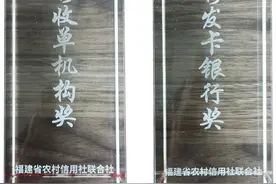 收单机构奖
福建省农村信用社联合社
发卡银行奖
福建省农村信用社联合社